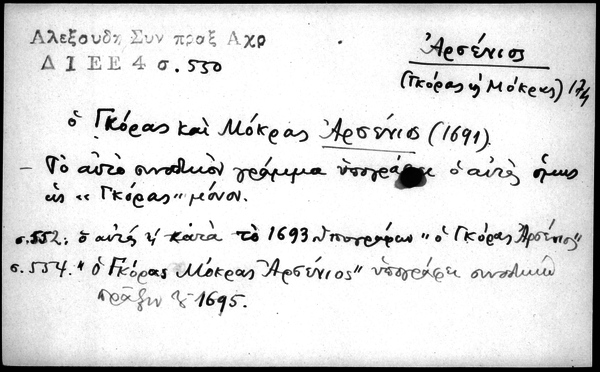 Αλεξουδη Συν πραξ Αχρ
Δ Ι Ε Ε 4 σ. 550
Ἀρσένιος
(Γκόρας ἢ Μόκρας) 174
ὁ Γκόρας καὶ Μόκρας Ἀρσένιος (1691).
– Τὸ αὐτὸ συνοδικὸν γράμμα ὑπογράφει ὁ αὐτὸς ὅμως
ὡς « Γκόρας » μόνον.
σ. 552: ὁ αὐτὸς κατὰ τὸ 1693 ὑπογράφων "ὁ Γκόρας Ἀρσένιος"
σ. 554. "ὁ Γκόρας Μόκρας Ἀρσένιος" ὑπογράφει συνοδικὴν
πρᾶξιν 1695.